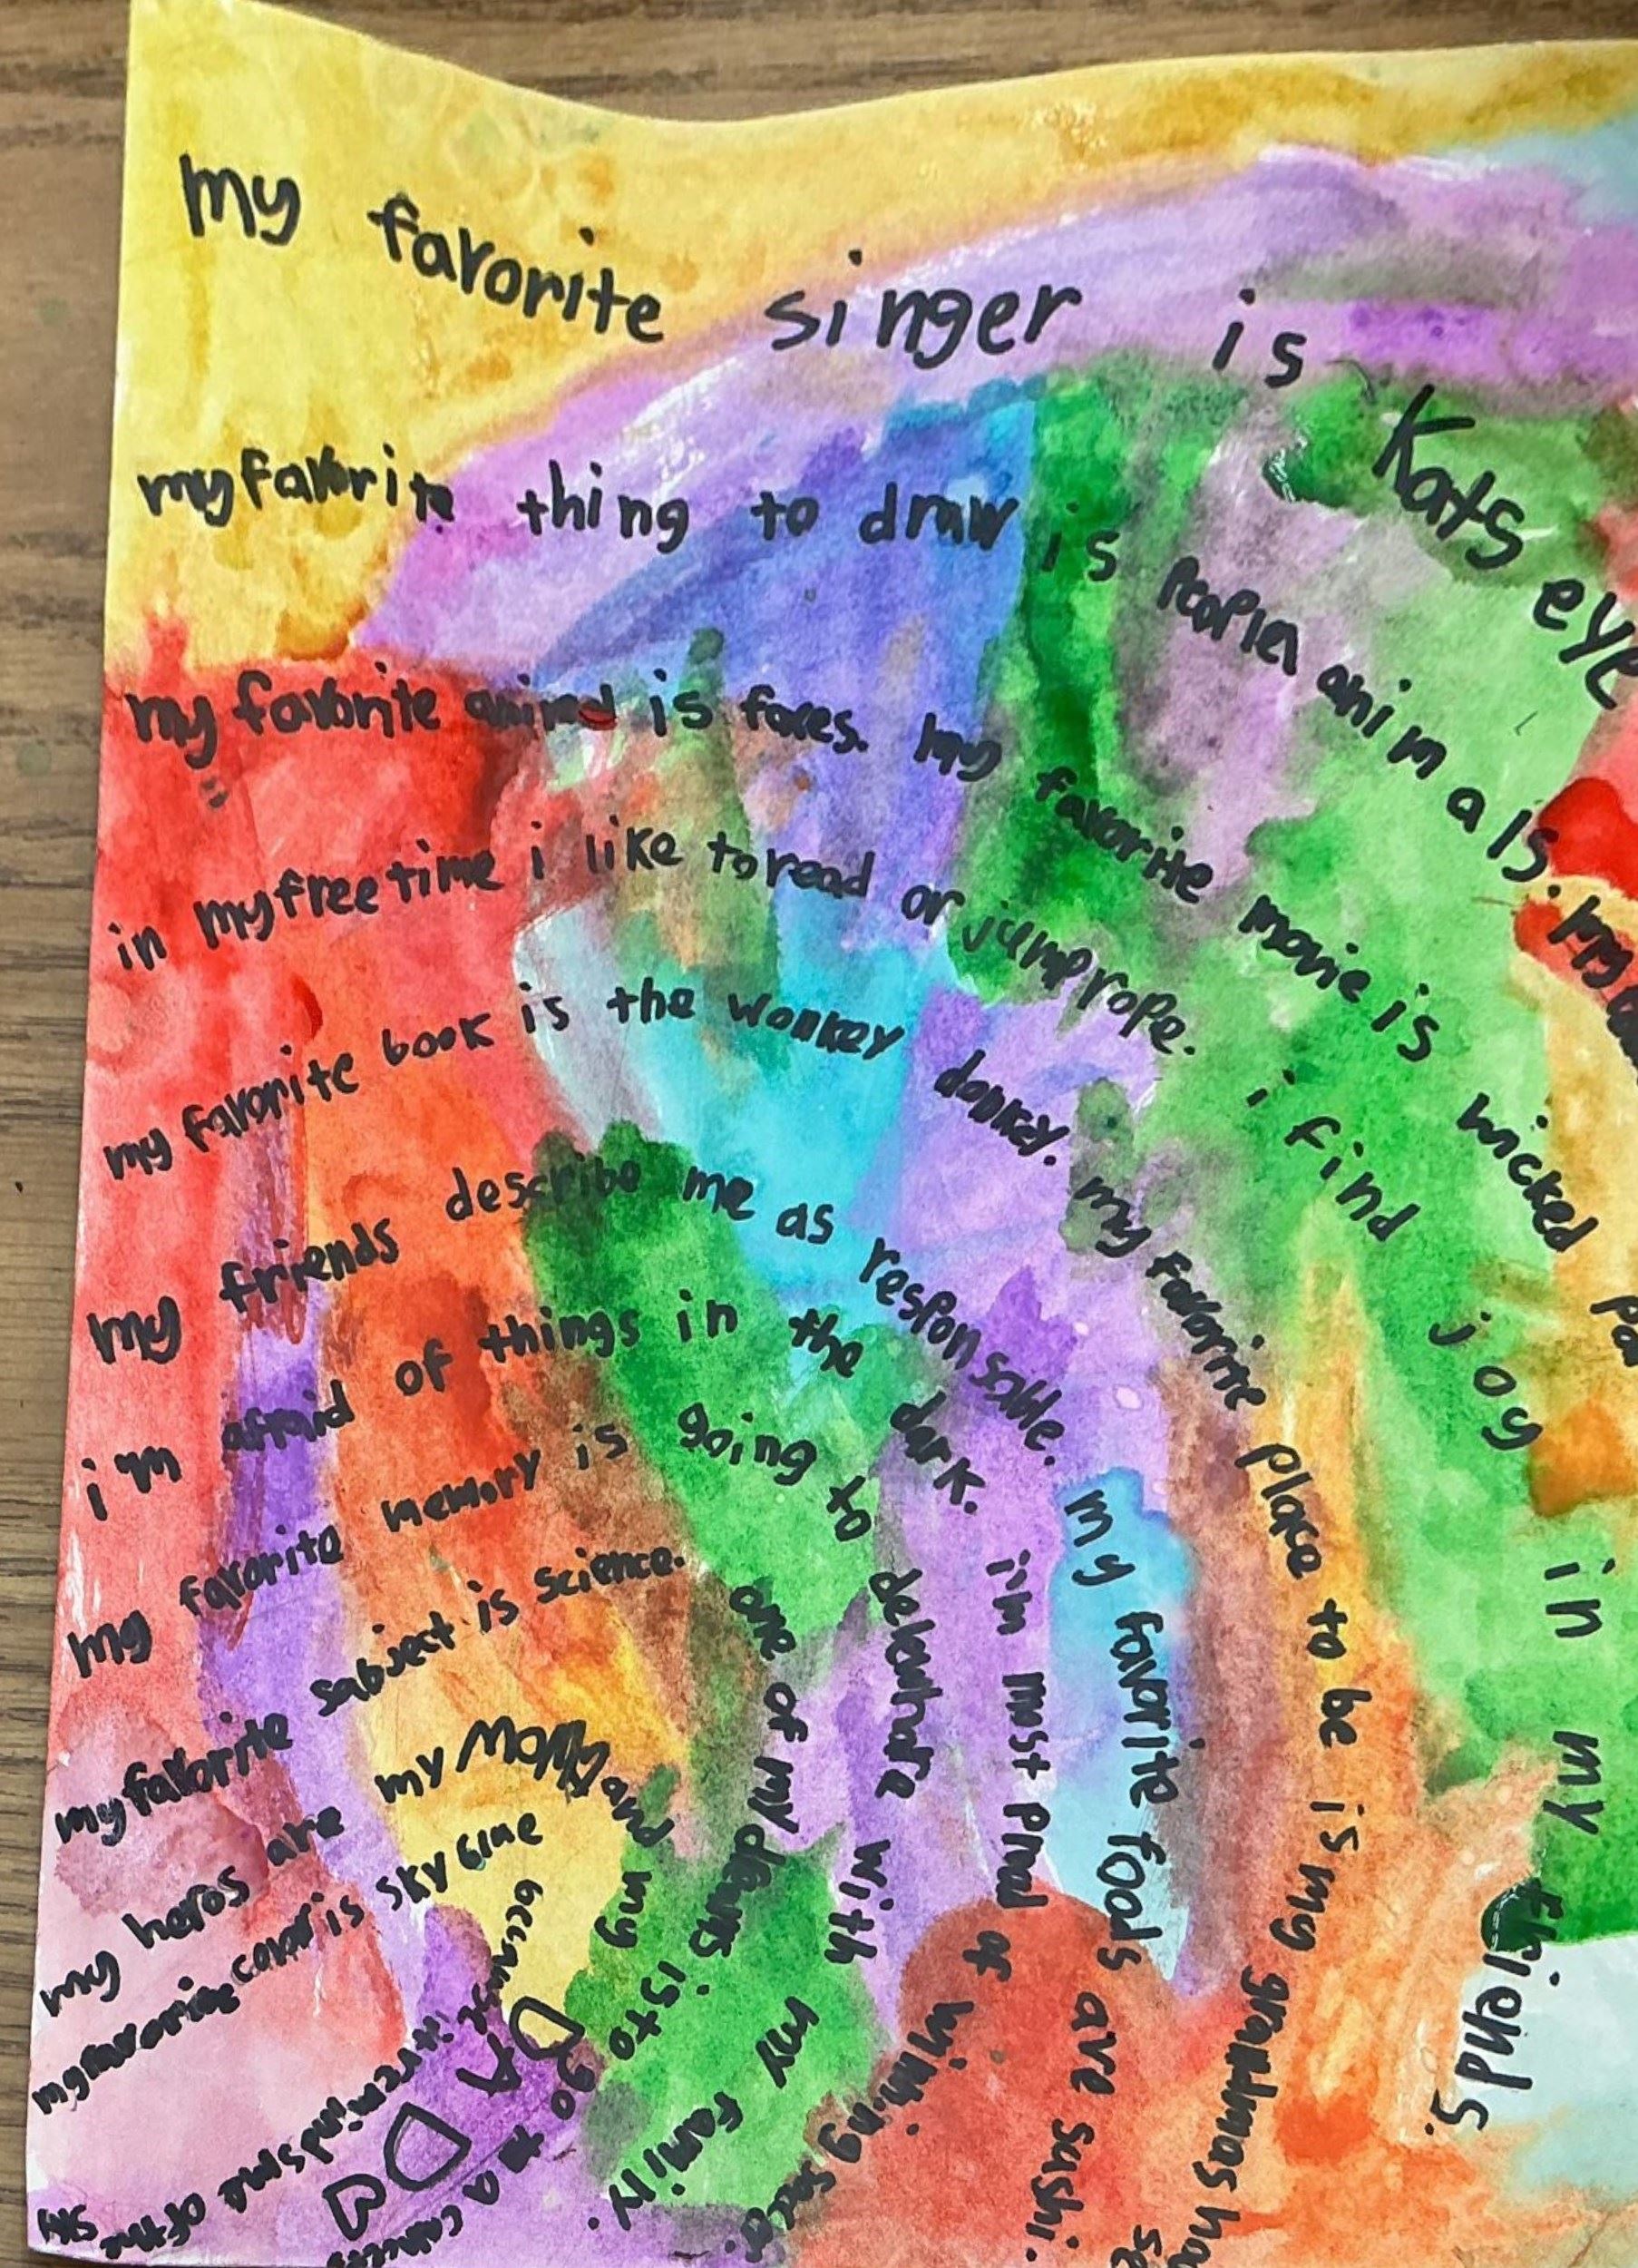 my favorite singer is Kats eye
my favorite thing to draw is people animals. my
my favorite animal is foxes. my favorite movie is wicked
in my free time i like to read or jumprope. i find joy in my friends.
my favorite book is the wonkey donkey. my favorite place to be is my grandmas
my friends describe me as responsable. my favorite foods are sushi.
i'm afraid of things in the dark. i'm most proud of winning soccer.
my favorite memory is going to delawhare with my family.
my favorite subject is science. one of my is to go to a
my heros are my mommy and my
my favorite color is sky blue because
it reminds me of the sky